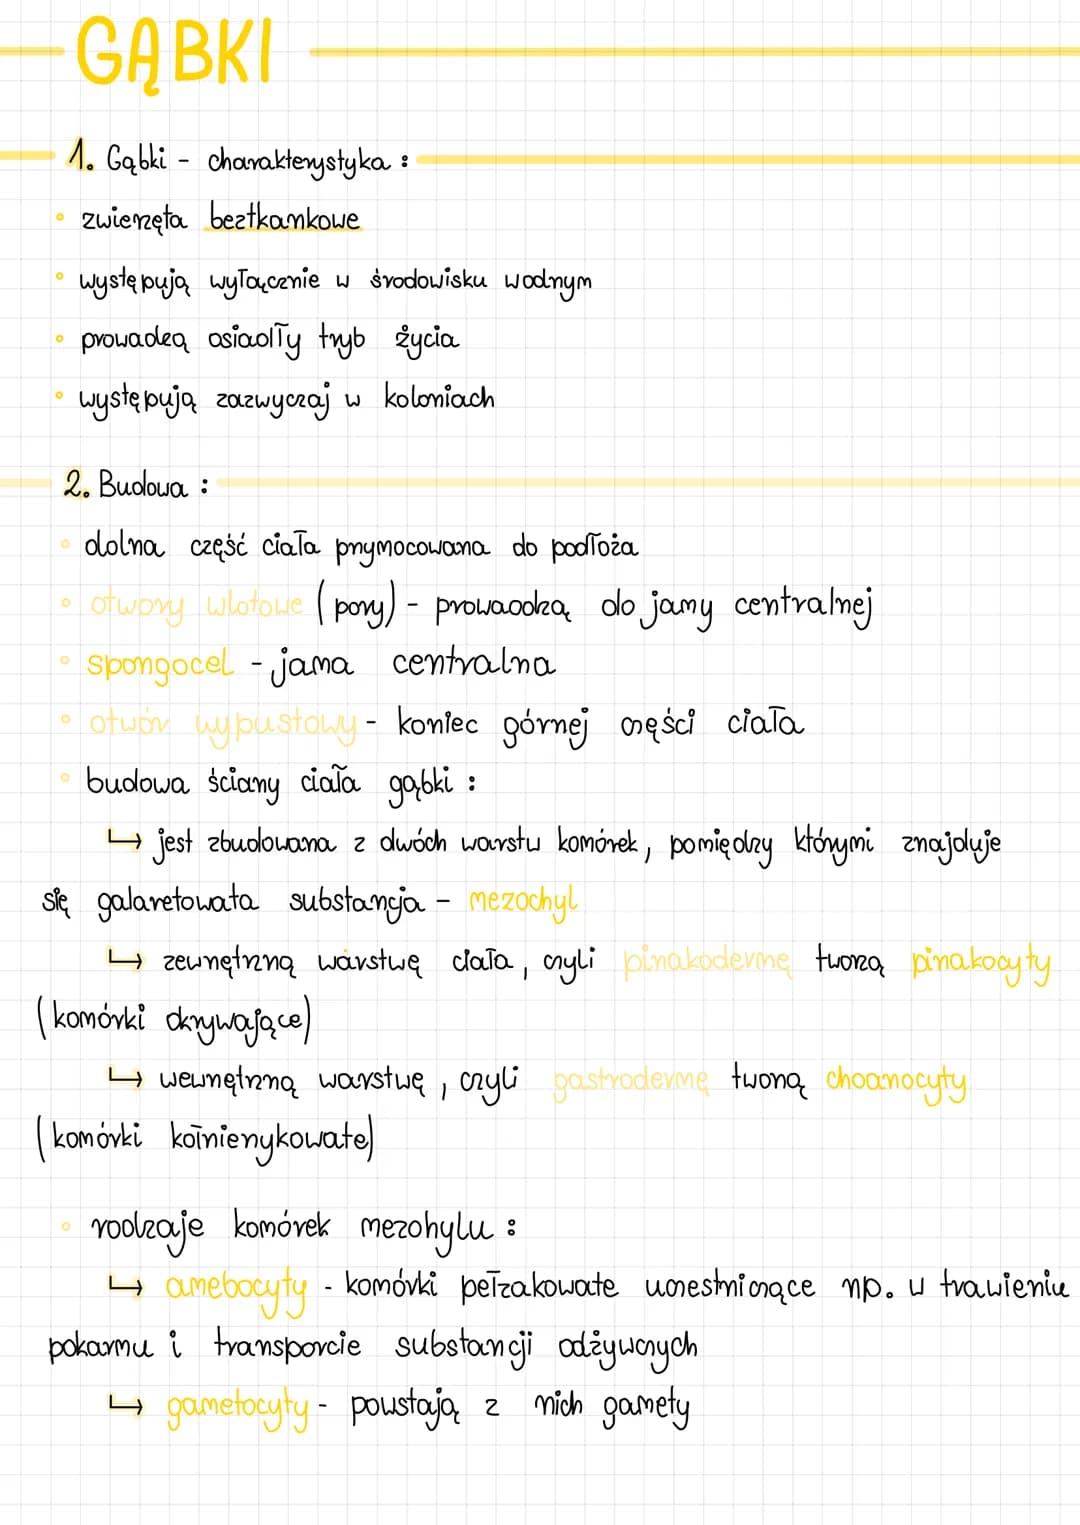 GĄBKI
1. Gąbki - charakterystyka :
• zwierzęta beztkankowe
• występują wyłącznie w środowisku wodnym
• prowadzą osiadły tryb życia
• występują zazwyczaj w koloniach
2. Budowa :
• dolna część ciała przymocowana do podłoża
• otwory wlotowe (pory) - prowadzą do jamy centralnej
• spongocel - jama centralna
• otwór wypustowy - koniec górnej części ciała
• budowa ściany ciała gąbki :
↳ jest zbudowana z dwóch warstw komórek, pomiędzy którymi znajduje
się galaretowata substancja - mezochyl
↳ zewnętrzną warstwę ciała, czyli pinakodermę tworzą pinakocyty
(komórki okrywające)
↳ wewnętrzną warstwę, czyli gastrodermę tworzą choanocyty
(komórki kołnierzykowate)
• rodzaje komórek mezohylu :
↳ amebocyty - komórki pełzakowate uczestniczące np. w trawieniu
pokarmu i transporcie substancji odżywczych
↳ gametocyty - powstają z nich gamety